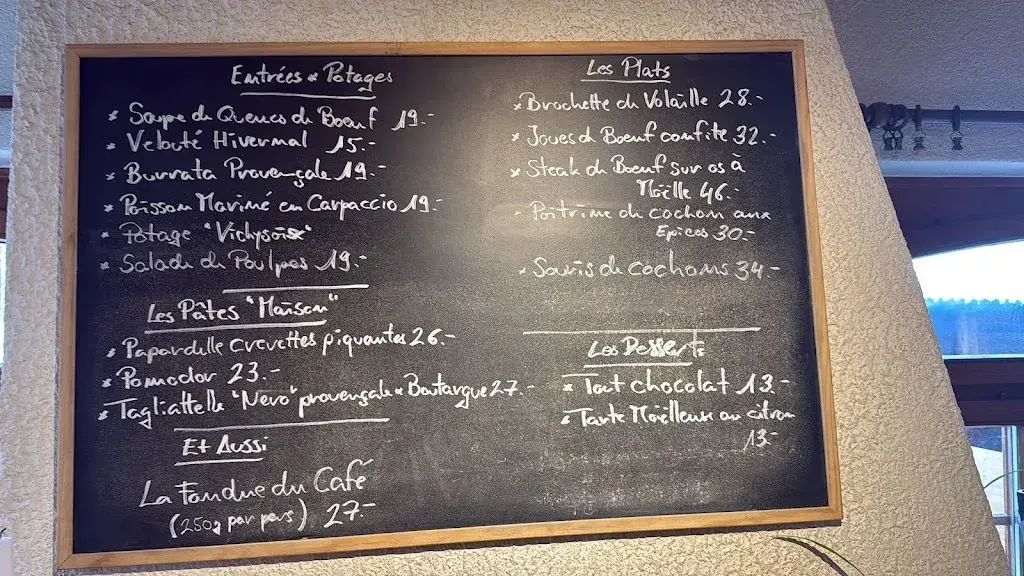 Entrées & Potages
* Soupe de Queues de Boeuf 19.-
* Velouté Hivernal 15.-
* Burrata Provençale 19.-
* Poisson Mariné en Carpaccio 19.-
* Potage "Vichysoise"
* Salade de Poulpes 19.-
Les Pâtes "Maison"
* Papardelle crevettes piquantes 26.-
* Pomodor 23.-
* Tagliattelle "Nero" provençale & Boutargue 27.-
Et Aussi
La Fondue du Café
(250g par pers) 27.-
Les Plats
* Brochette de Volaille 28.-
* Joues de Boeuf confite 32.-
* Steak de Boeuf sur os à
Moëlle 46.-
- Poitrine de cochon aux
Epices 30.-
* Souris de cochons 34.-
Les Desserts
* Tout chocolat 13.-
* Tarte Moëlleuse au citron
13.-